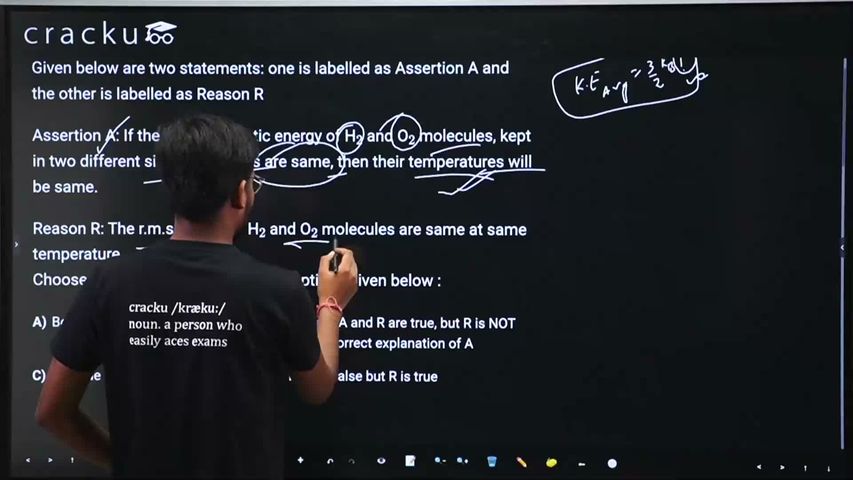 cracku
Given below are two statements: one is labelled as Assertion A and
the other is labelled as Reason R
K.E Avg = 3/2
Assertion A: If the tic energy of H₂ and O₂ molecules, kept
in two different si s are same, then their temperatures will
be same.
Reason R: The r.m.s H₂ and O₂ molecules are same at same
temperature.
Choose pti iven below :
A) B A and R are true, but R is NOT
orrect explanation of A
C) e alse but R is true
cracku /kræku:/
noun. a person who
easily aces exams